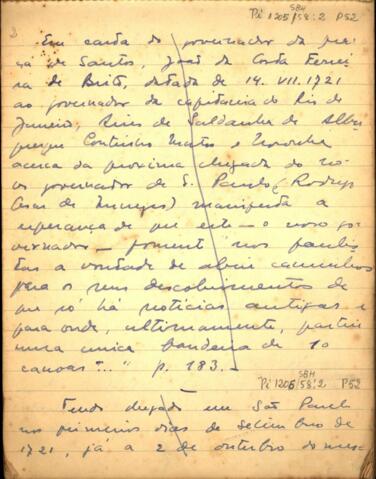 SBH
Pi 1205/58:2 P52
2
Em carta do governador da praça
de Santos, José da Costa Ferrei
ra de Brito, datada de 14.VII.1721
ao governador da capitania do Rio de
Janeiro, Aires de Saldanha de Albu
querque Coutinho Matos e Noronha
acerca da proxima chegada do no
vo governador de S. Paulo (Rodrigo
Cesar de Menezes) manifesta a
esperança de que este — o novo go
vernador — fomente nos paulis
tas a vontade de abrir caminhos
para os seus descobrimentos de
que só há notícias antigas e
para onde, ultimamente, partiu
uma unica bandeira de 10
canoas "..." p. 183. —
SBH
Pi 1205/58:2 P52
Tendo chegado em São Paulo
nos primeiros dias de setembro de
1721, já a 2 de outubro do mes